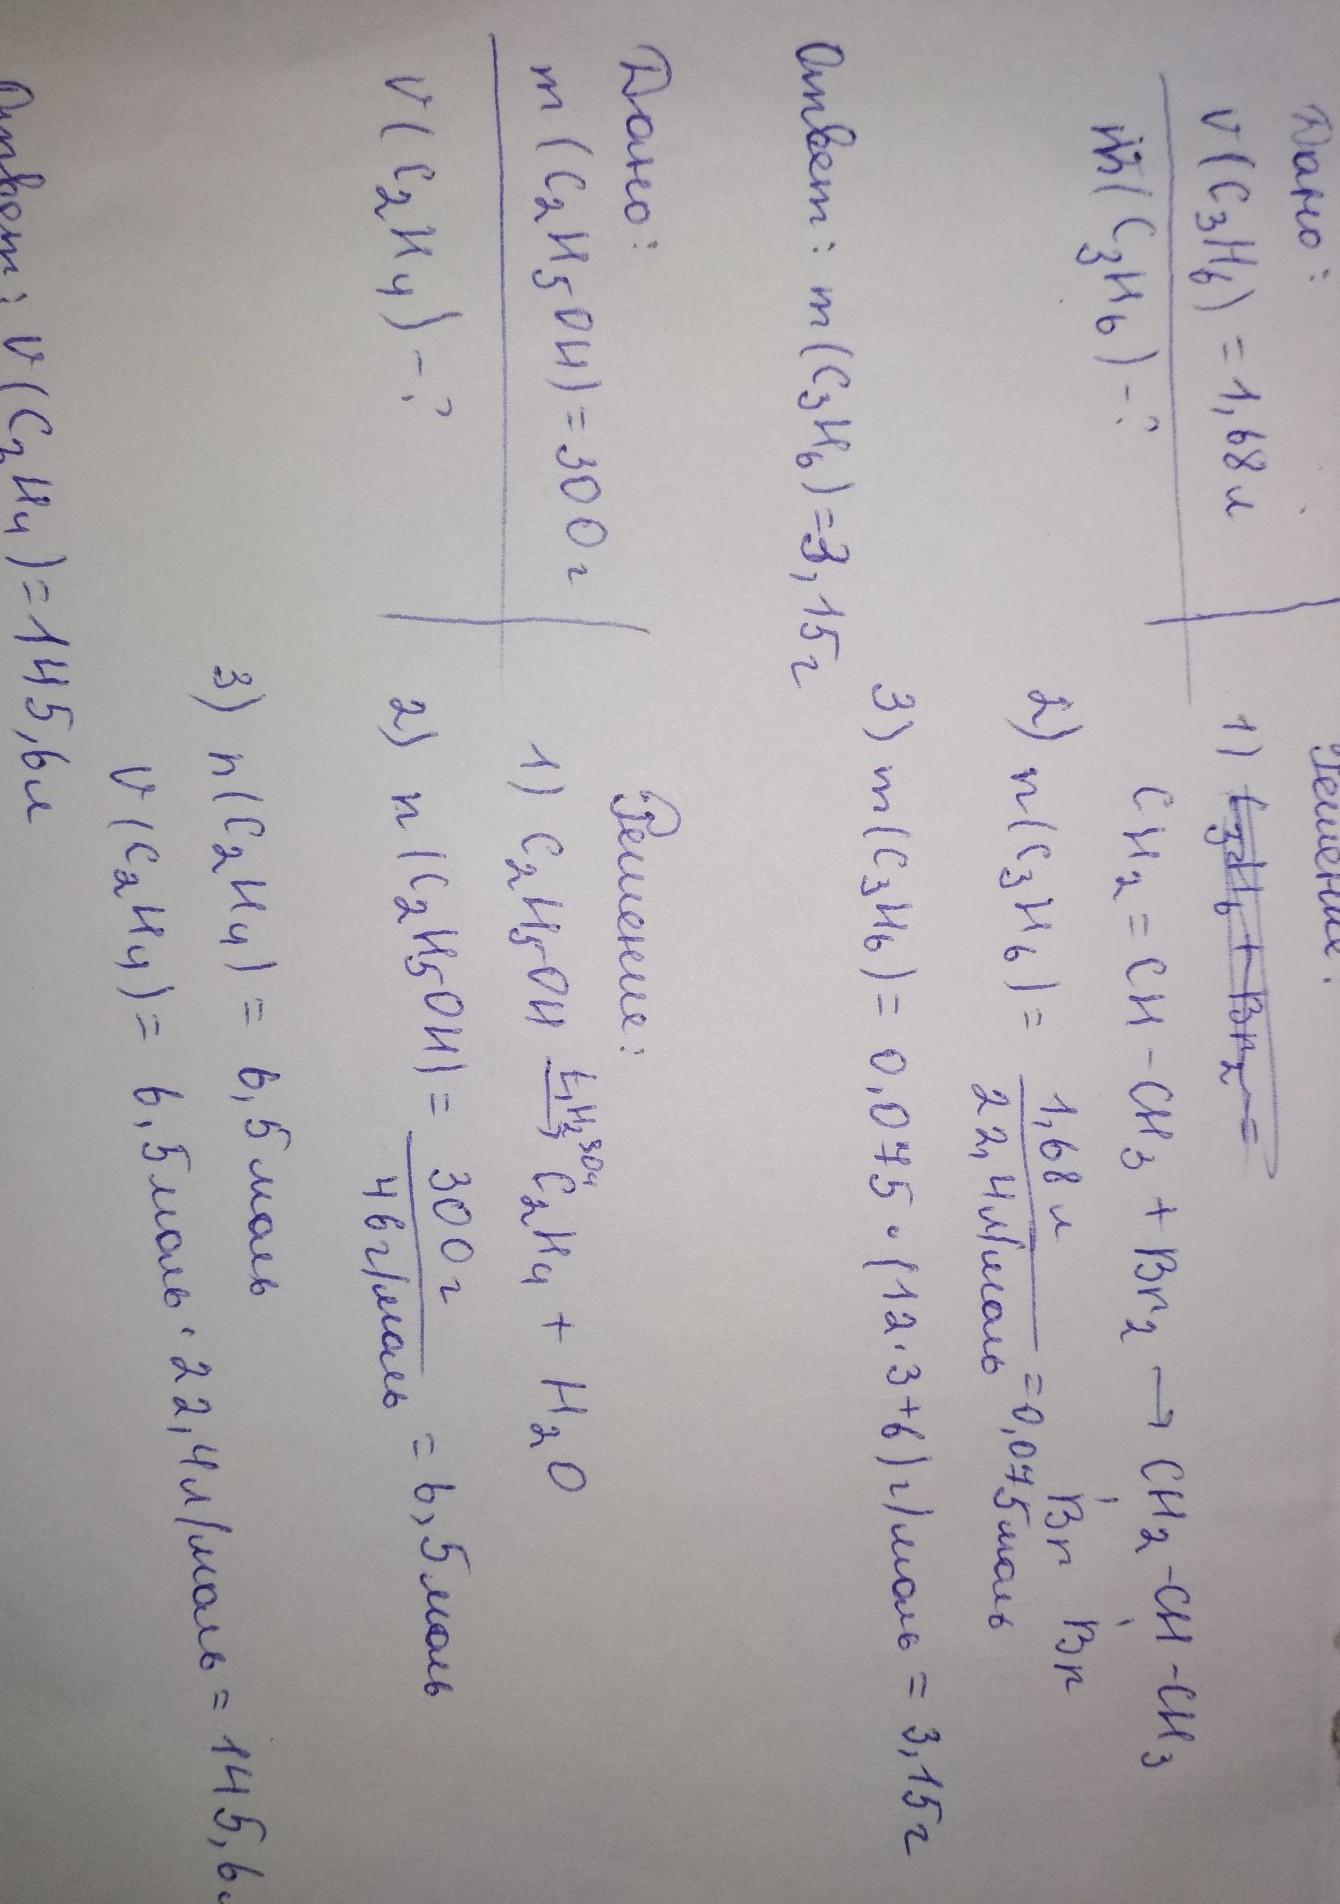 Дано:
V(C₃H₆) = 1,68 л
m(C₃H₆) - ?
Решение:
1)
CH₂ = CH - CH₃ + Br₂ → CH₂ - CH - CH₃
Br Br
2) n(C₃H₆) = 1,68 л / 22,4 л/моль = 0,075 моль
3) m(C₃H₆) = 0,075 · (12·3+6) г/моль = 3,15 г
Ответ: m(C₃H₆) = 3,15 г
Дано:
m(C₂H₅OH) = 300 г
V(C₂H₄) - ?
Решение:
1) C₂H₅OH t, H₂SO₄ → C₂H₄ + H₂O
2) n(C₂H₅OH) = 300 г / 46 г/моль = 6,5 моль
3) n(C₂H₄) = 6,5 моль
V(C₂H₄) = 6,5 моль · 22,4 л/моль = 145,6
Ответ: V(C₂H₄) = 145,6 л